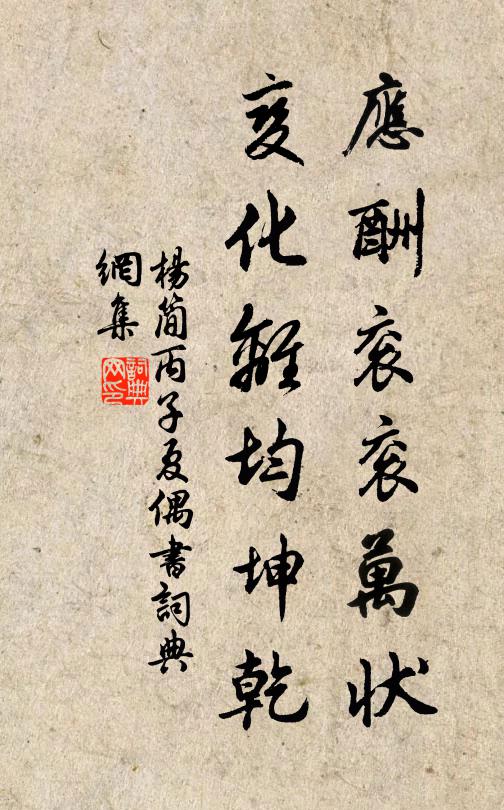 應酬衮衮萬狀
變化離均坤乾
楊簡丙子夏偶書詞典
網集
詞典
网印